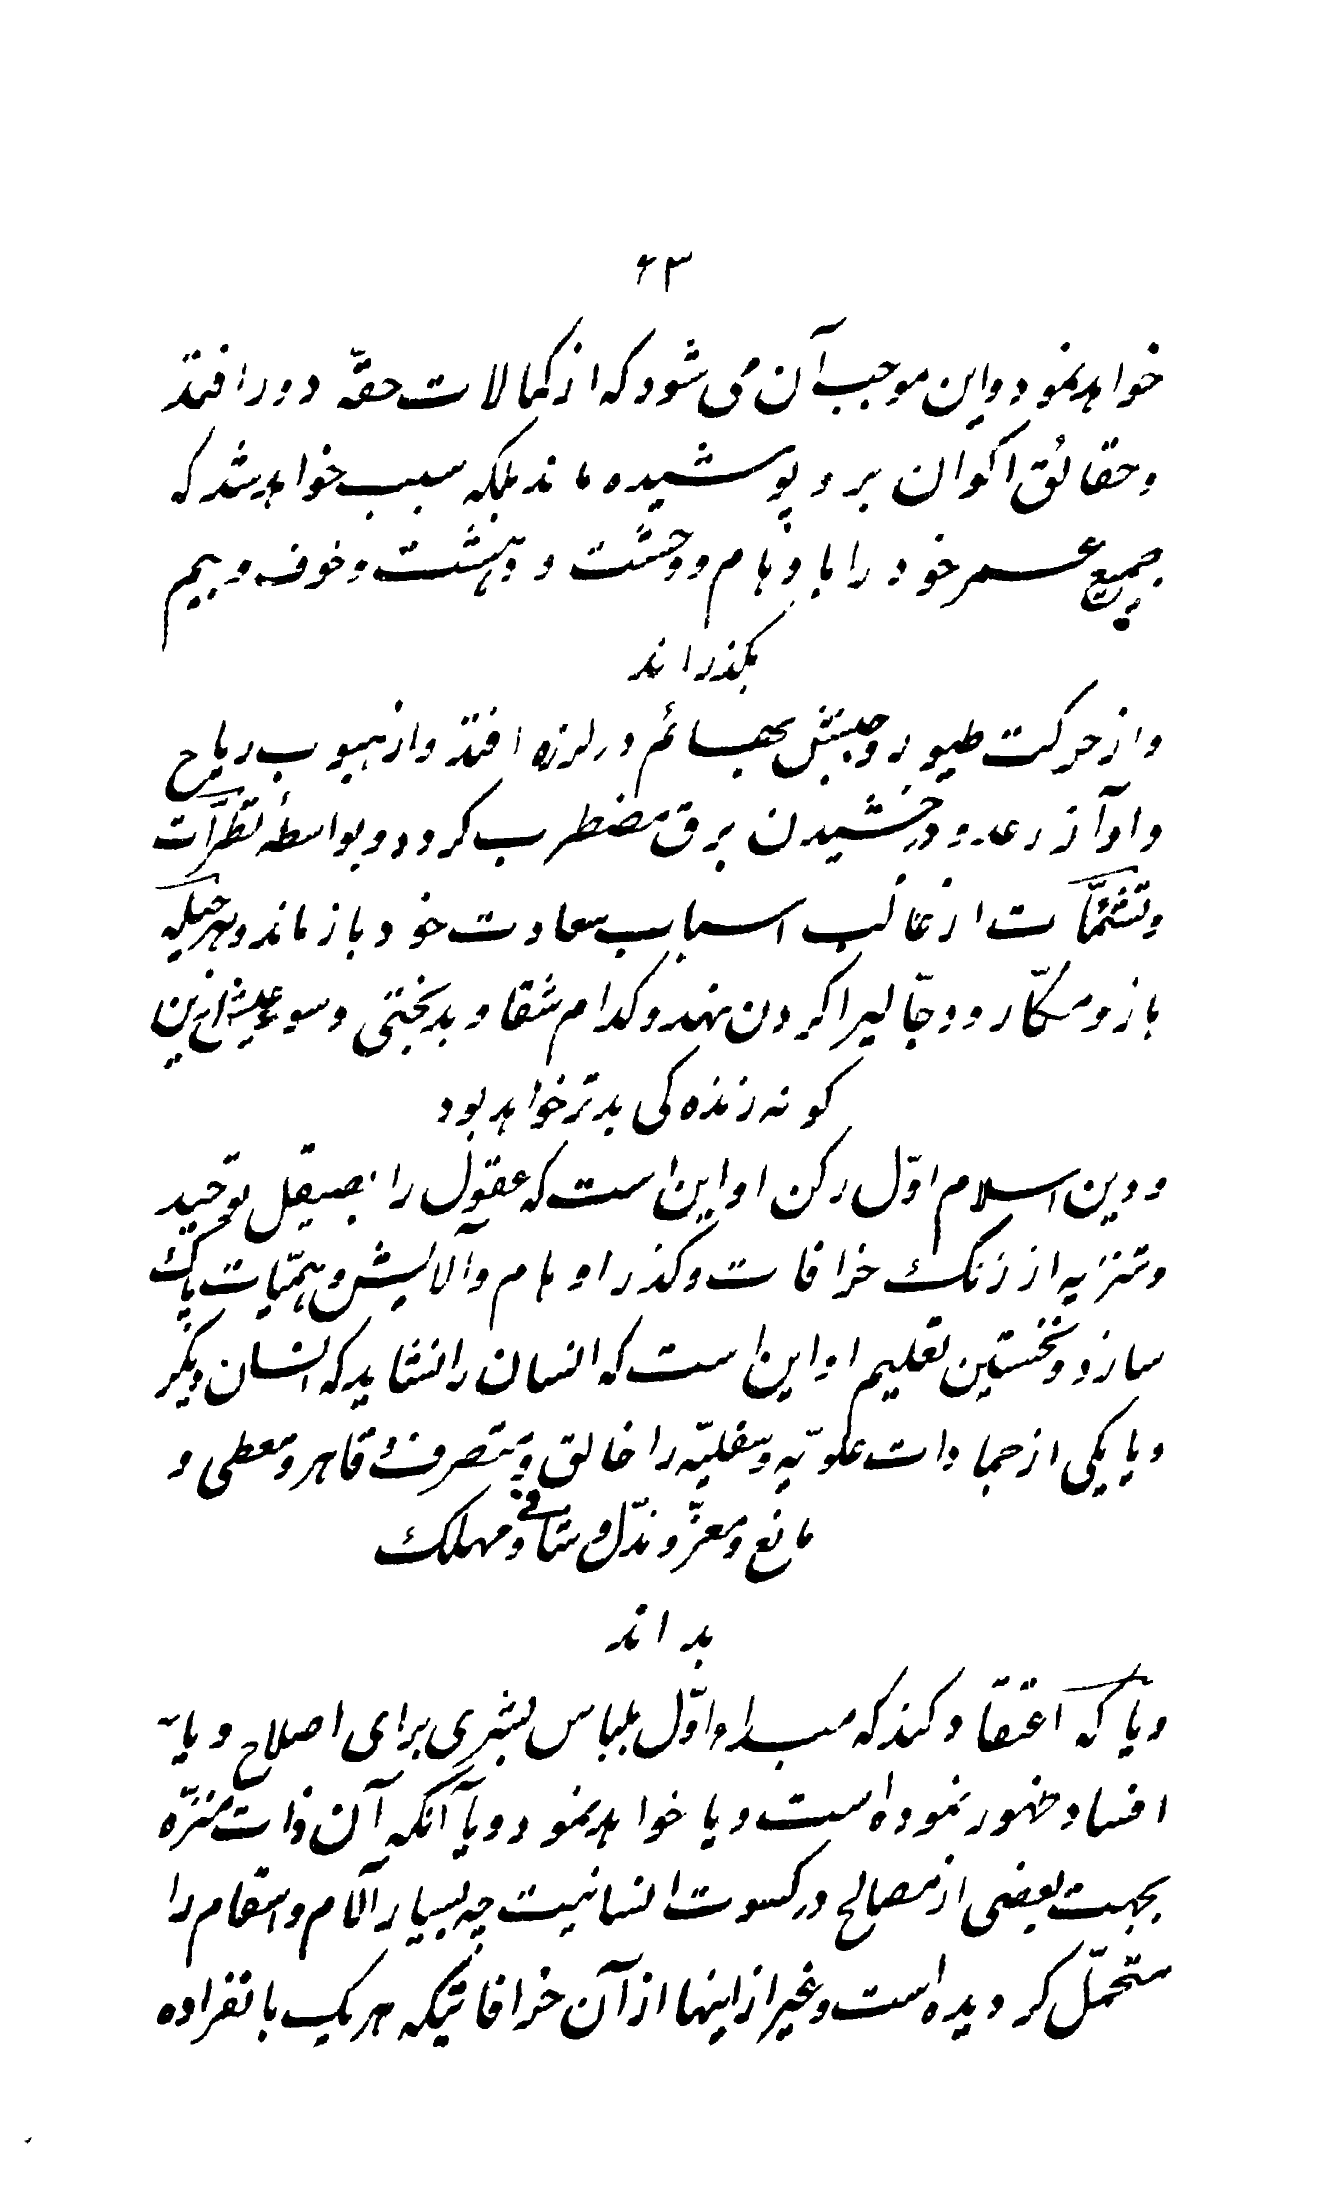 ۶۳
خواهد نمود و این موجب آن می شود که از کمالات حقّه دور افتد
و حقائق اکوان بر و پوشیده ماند بلکه سبب خواهد شد که
جمیع عمر خود را باوهام و وحشت و دهشت و خوف و بیم
بکذراند
و از حرکت طیور و جنبش بهائم در لرزه افتد و از هبوب ریاح
و اوآز رعد و درخشیدن برق مضطرب کردد و بواسطهٔ تطیّرات
و تشئمّات از غالب اسباب سعادت خود باز ماند و بهر حیله
باز و مکّار و دجّالیرا کردن نهد و کدام شقا و بدبختی و سوء عیش ازین
کونه زنده کی بدتر خواهد بود
و دین اسلام اوّل رکن او این است که عقول را بصیقل توحید
و تنزیه از زنک خرافات و کدر اوهام و آلایش وهمیّات پاک
سازد و نخستین تعلیم او این است که انسان را نشاید که انسان دیکر
و یا یکی از جمادات علویّه و سفلیّه را خالق و متصرف و قاهر و معطی و
مانع و معزّ و مذلّ و شافی و مهلک
بداند
و یا که اعتقاد کند که مبداء اوّل بلباس بشری برای اصلاح و یا
افساد ظهور نموده است و یا خواهد نمود و یا آنکه آن ذات منزّه
بجهت بعضی از مصالح در کسوت انسانیت چه بسیار آلام و اسقام را
متحمّل کردیده است و غیر از اینها از آن خرافاتیکه هر یک بانفراده